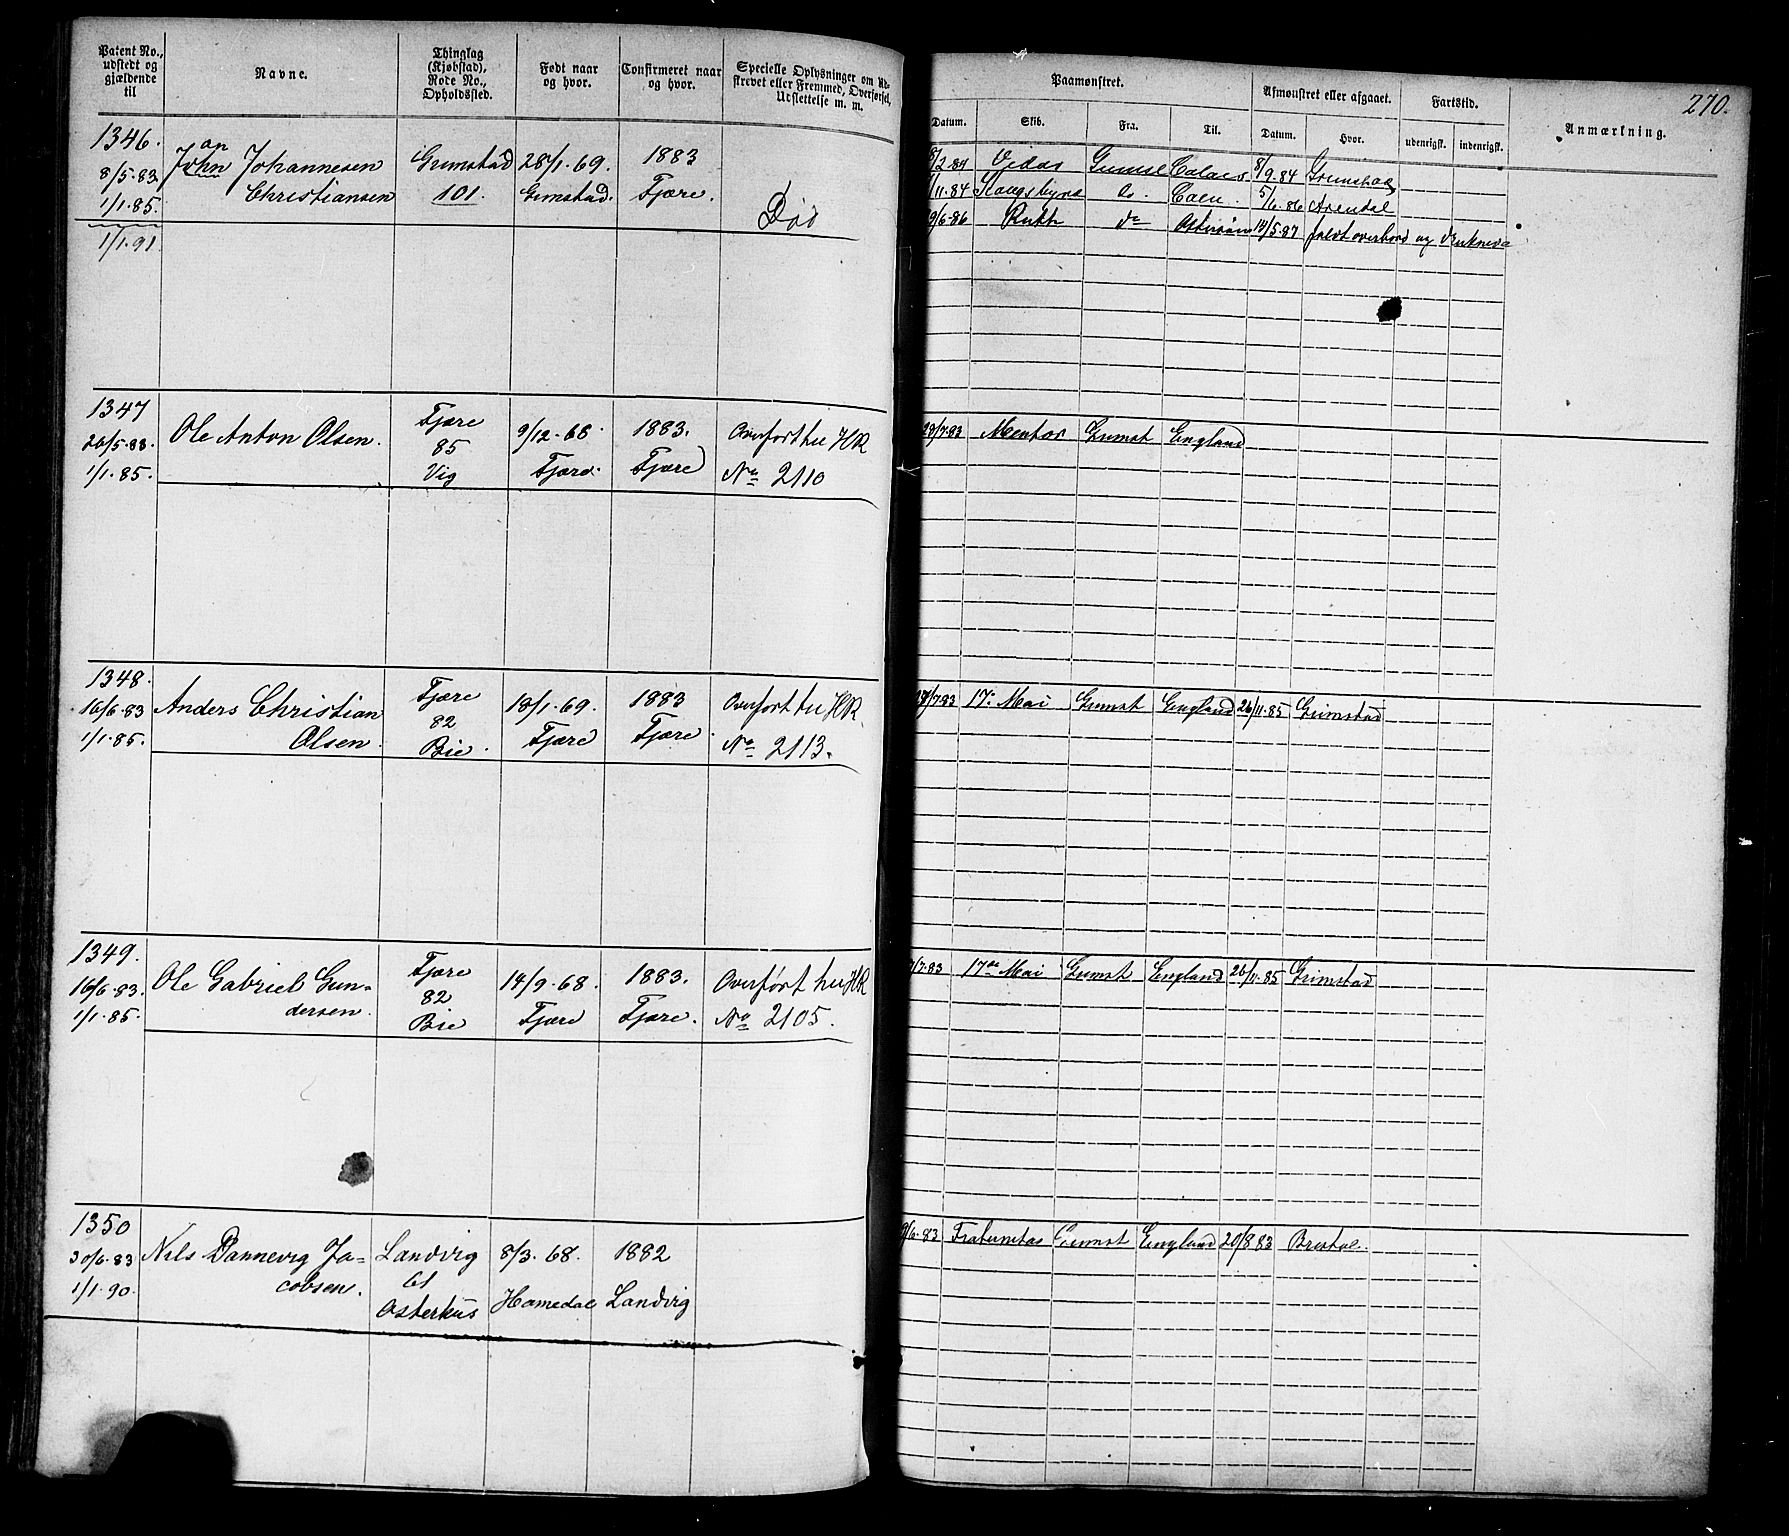 Patent No., udstedt og gjældende til
Navne.
Thinglag (Kjøbstad), Rode No., Opholdssted.
Født naar og hvor.
Confirmeret naar og hvor.
Specielle Oplysninger om Ud-
skrevet eller Fremmed, Overførsel,
Udslettelse m. m.
Paamønstret.
Afmønstret eller afgaaet.
Fartstid.
Anmærkning.
270.
Datum. Skib. Fra. Til. Datum. Hvor. udenrigsk. indenrigsk.
1346.
8/5.83.
1/1.85.
1/1.91.
an
John Johannesen
Christiansen
Grimstad
101.
28/1.69.
Grimstad.
1883
Fjære.
Død
8/2.84 Vidar Grimst Calais 8/9.84 Grimstad
/11.84 do. Caen. 5/6.86 Arendal
9/6.86 Ruth do 14/5.87 faldt overbord og druknede
1347
26/5.83.
1/1.85.
Ole Anton Olsen.
Fjære
85
Vig
9/12.68.
Fjære.
1883.
Fjære
Overført til HR
No 2110
28/7.83 Mentor Grimst England
1348.
16/6.83
1/1.85.
Anders Christian
Olsen.
Fjære
82
Bie.
18/1.69.
Fjære
1883
Fjære.
Overført til HR
No 2113.
28/7.83 17. Mai Grimst England 26/11.85 Grimstad
1349.
16/6.83.
1/1.85.
Ole Gabriel Gun-
dersen.
Fjære
82
Bie
14/9.68.
Fjære
1883.
Fjære.
Overført til HR
No 2105.
/7.83 17de Mai Grimst England 26/11.85 Grimstad
1350
30/6.83
1/1.90.
Nils Dannevig Ja-
cobsen.
Landvig
61
Østerhus
8/3.68.
Homedal
1882
Landvig
9/6.83 Fraternitas Grimst England 20/8 83 Bristol.